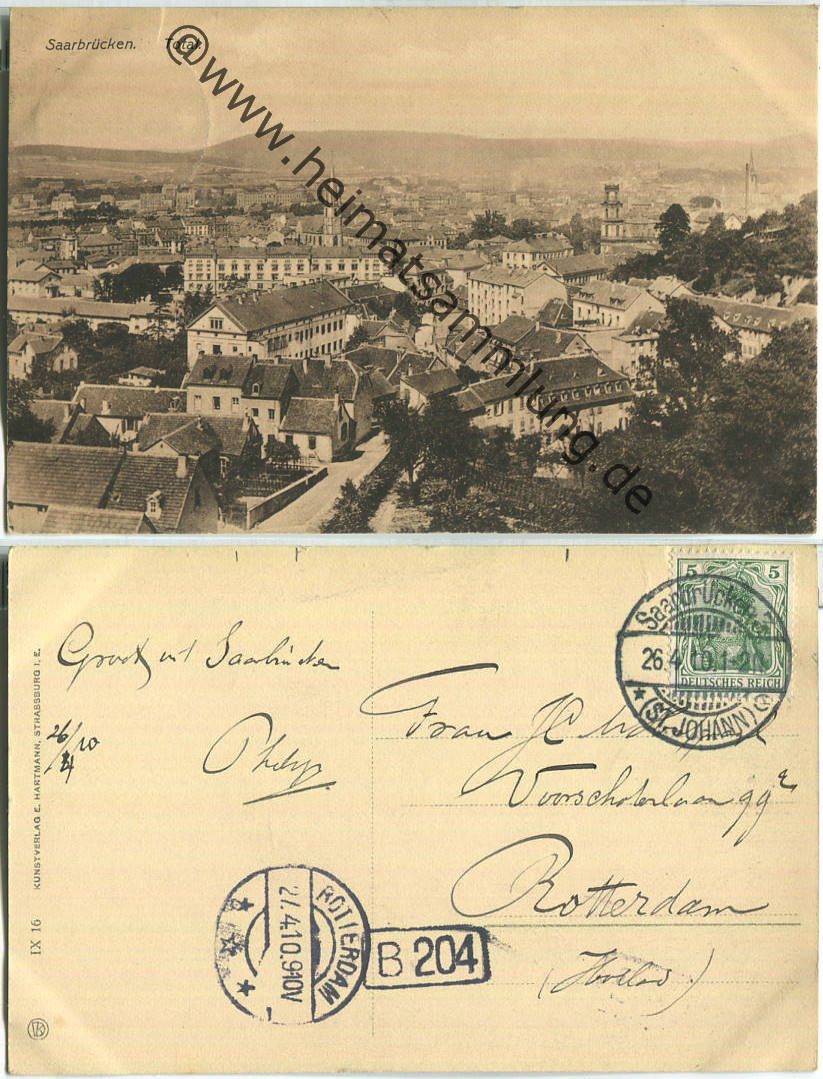 Saarbrücken. Total.
@www.heimatsammlung.de
5 5
DEUTSCHES REICH
Saarbrücken 3
26.4.10.1-2N
* (ST. JOHANN) *
Groet uit Saarbrücken
26/4 10
Philip
Frau
Voorschoterlaan 99
Rotterdam
ROTTERDAM
27.4.10.9-10V
B 204
KUNSTVERLAG E. HARTMANN, STRASSBURG I. E.
IX 16